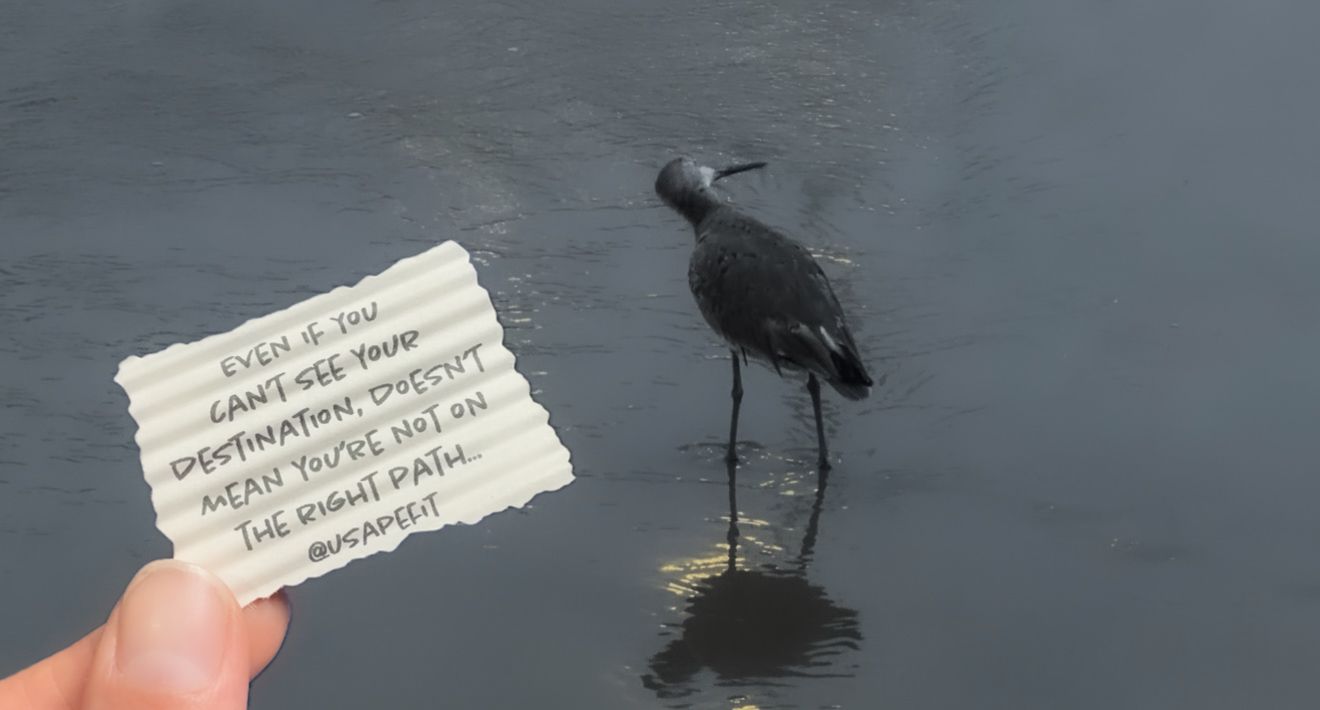 EVEN IF YOU
CAN'T SEE YOUR
DESTINATION, DOESN'T
MEAN YOU'RE NOT ON
THE RIGHT PATH...
@USAPEFIT